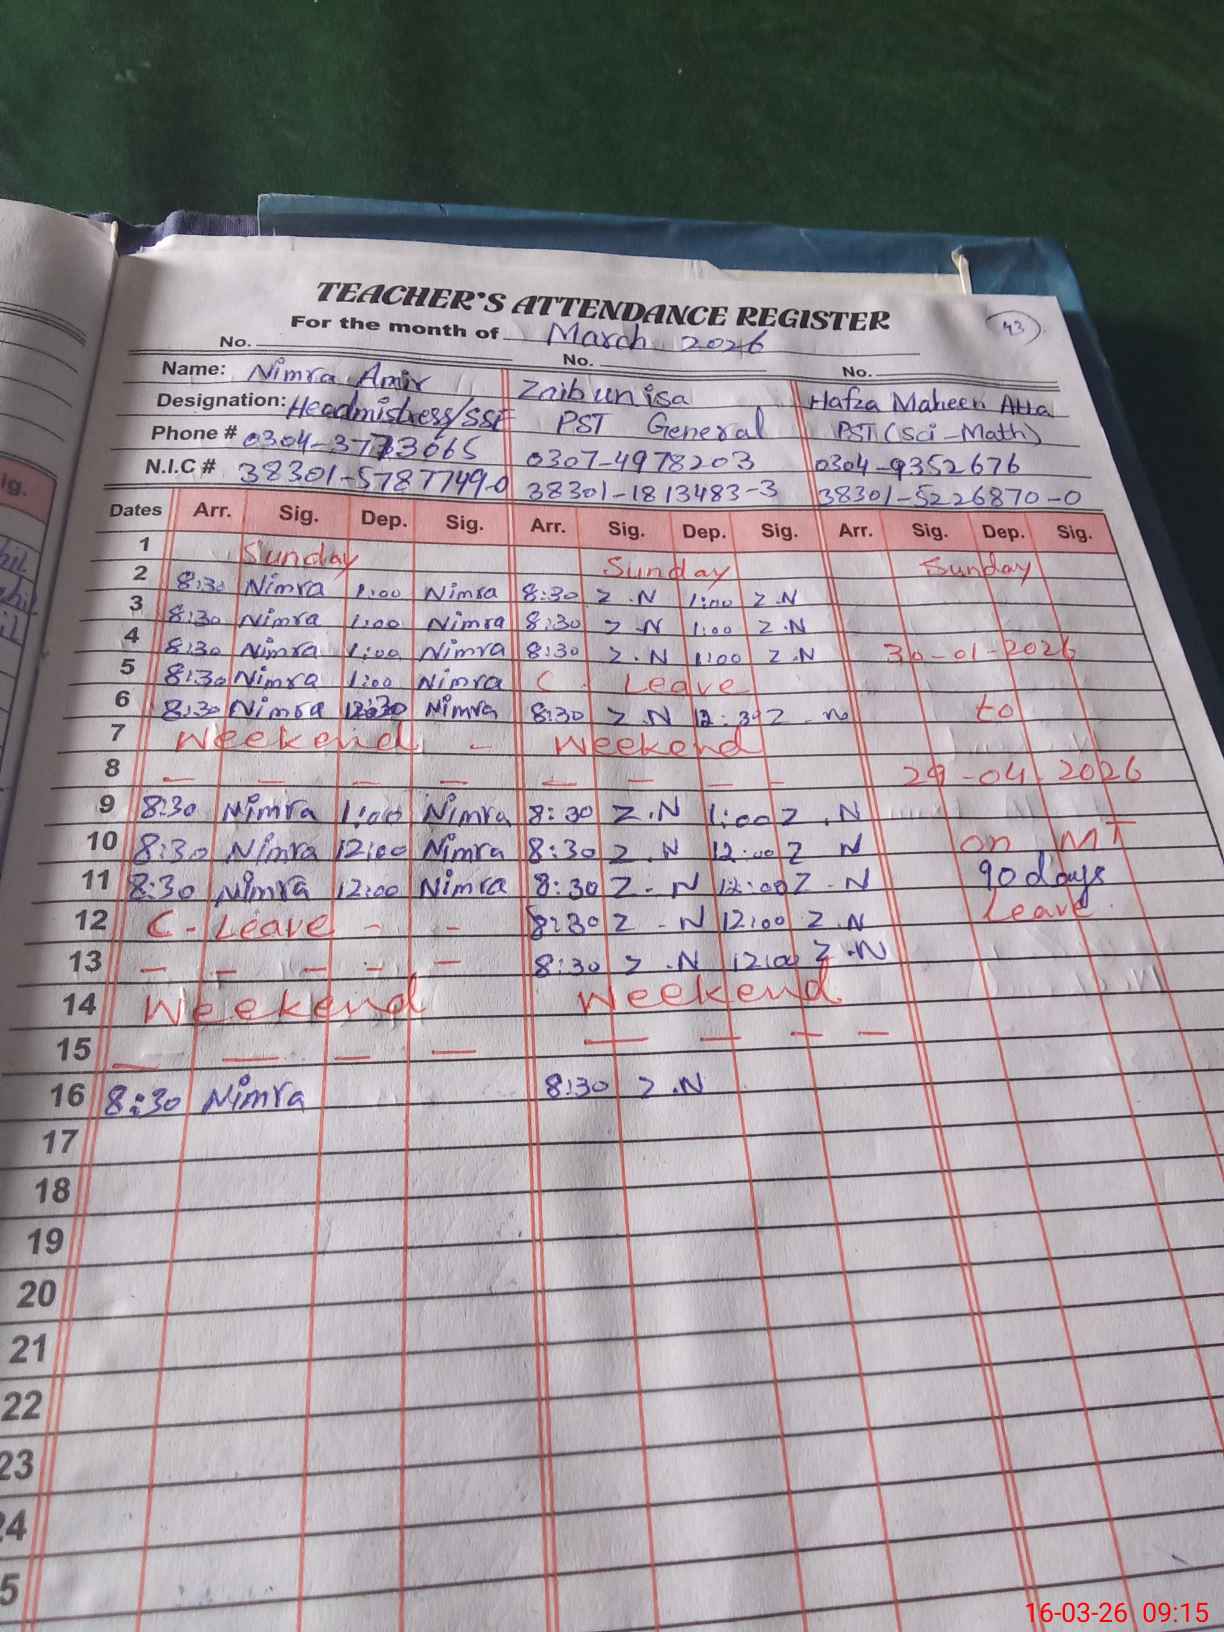 TEACHER'S ATTENDANCE REGISTER
For the month of March 2026
43
No. No. No.
Name: Nimra Amir Zaibunisa Hafza Maheen Atta
Designation: Headmistress/SSE PST General PST (Sci-Math)
Phone # 0304-3773065 0307-4978203 0304-9352676
N.I.C # 38301-5787749-0 38301-1813483-3 38301-5226870-0
Dates Arr. Sig. Dep. Sig. Arr. Sig. Dep. Sig. Arr. Sig. Dep. Sig.
1 Sunday Sunday Sunday
2 8:30 Nimra 1:00 Nimra 8:30 Z.N 1:00 Z.N
3 8:30 Nimra 1:00 Nimra 8:30 Z-N 1:00 Z.N
4 8:30 Nimra 1:00 Nimra 8:30 Z.N 1:00 Z.N 30-01-2026
5 8:30 Nimra 1:00 Nimra C Leave
6 8:30 Nimra 12:30 Nimra 8:30 Z.N 12:30 Z-N to
7 Weekend - Weekend
8 — — — — — — — - 29-04-2026
9 8:30 Nimra 1:00 Nimra 8:30 Z.N 1:00 Z.N
10 8:30 Nimra 12:00 Nimra 8:30 Z.N 12:00 Z N on MT
11 8:30 Nimra 12:00 Nimra 8:30 Z-N 12:00 Z-N 90 days
12 C-Leave - - 8:30 Z-N 12:00 Z.N Leave
13 — — — — — 8:30 Z.N 12:00 Z.N
14 Weekend Weekend
15 — — — — — — — —
16 8:30 Nimra 8:30 Z.N
17
18
19
20
21
22
23
24
5
16-03-26 09:15